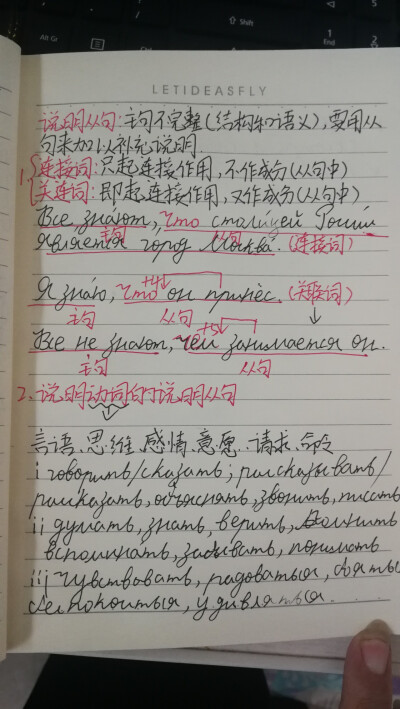 LETIDEASFLY
说明从句:主句不完整(结构和语义),要用从
句来加以补充说明.
1.连接词:只起连接作用,不作成分(从句中)
关连词:即起连接作用,又作成分(从句中)
Все знáют, что столицей Росии
является город Москвá. (连接词)
主句 从句
+4
Я знáю, что он принёс. (关联词)
主句 从句
+5
Все не знают, чем занимается он.
主句 从句
2.说明动词的说明从句
言语、思维、感情、意愿、请求、命令
i говорить/сказать; рассказывать/
рассказать, объяснять, звонить, писать
ii думать, знать, верить, помнить
вспоминать, забывать, понимать
iii чувствовать, радоваться, бояться
беспокоиться, удивляться.